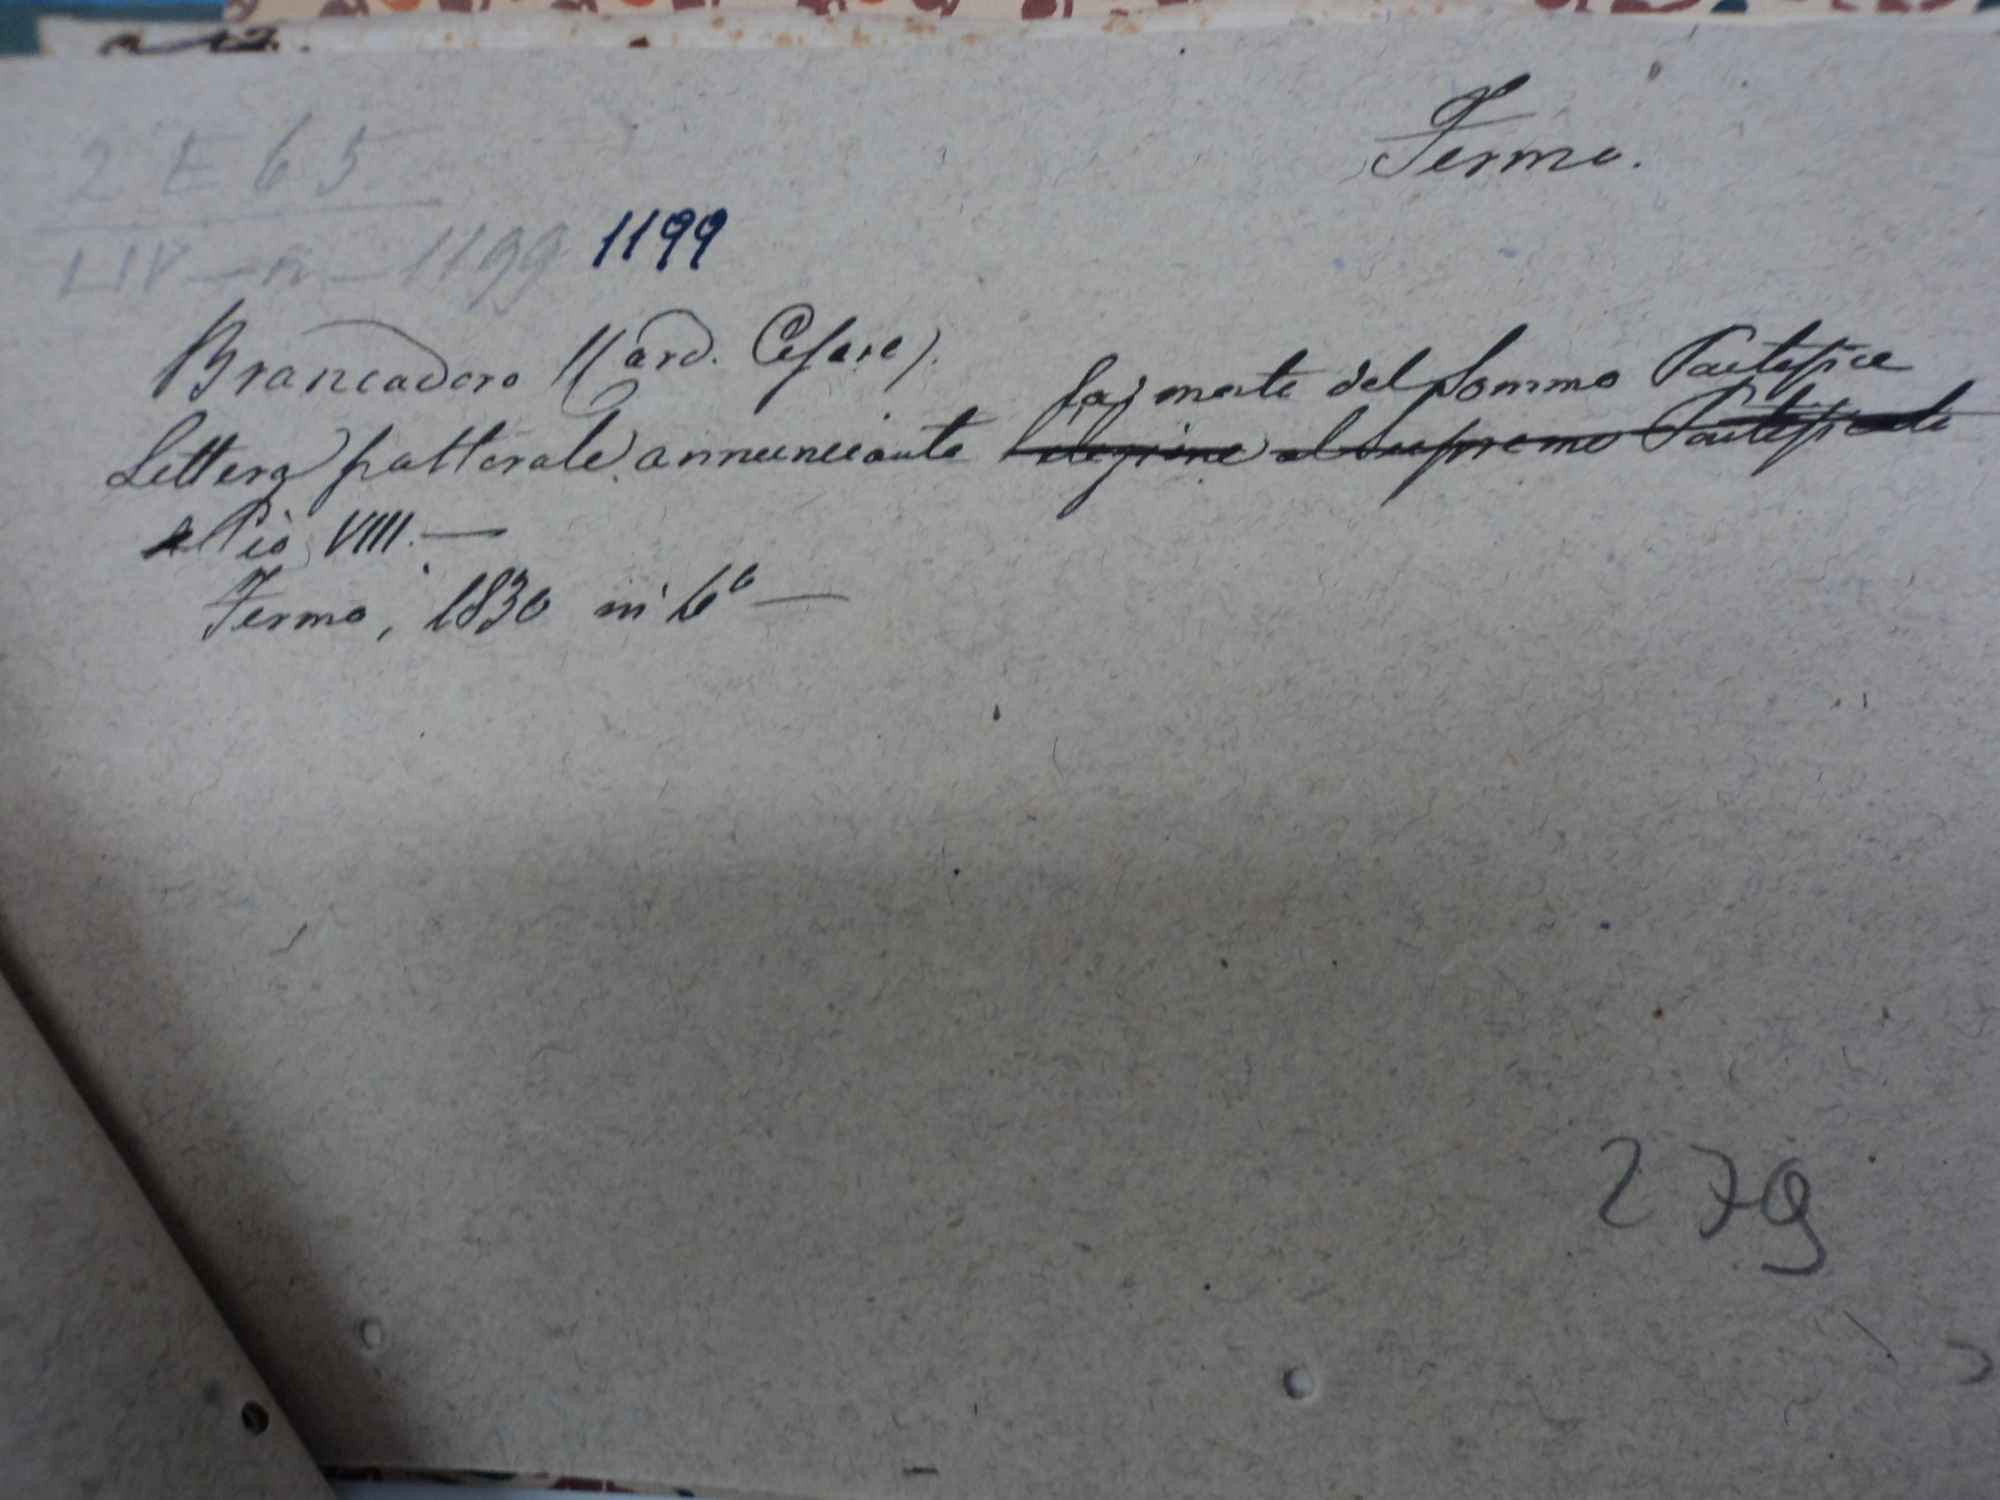 Fermo.
2 E 65
LIV - n - 1199 1199
Brancadoro (Card. Cesare).
la morte del Sommo Pontefice
Lettera pastorale annunciante l'elezione al Supremo Pontificato
Pio VIII. —
Fermo, 1830 in 6° —
279